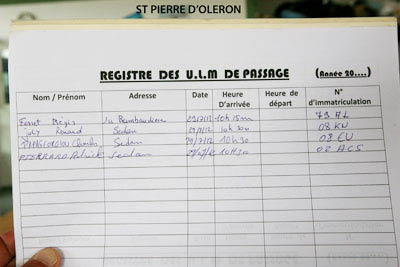 ST PIERRE D'OLERON
REGISTRE DES U.L.M DE PASSAGE (Année 20....)
Nom / Prénom Adresse Date Heure D'arrivée Heure de départ N° d'immatriculation
Régis La 29/7/12 10h15m 79 AL
Joly Sedan 10h30 08 KU
Sedan 29/7/12 10h30 08 EU
PIERRARD Patrick Sedan 10H30 08 ACS